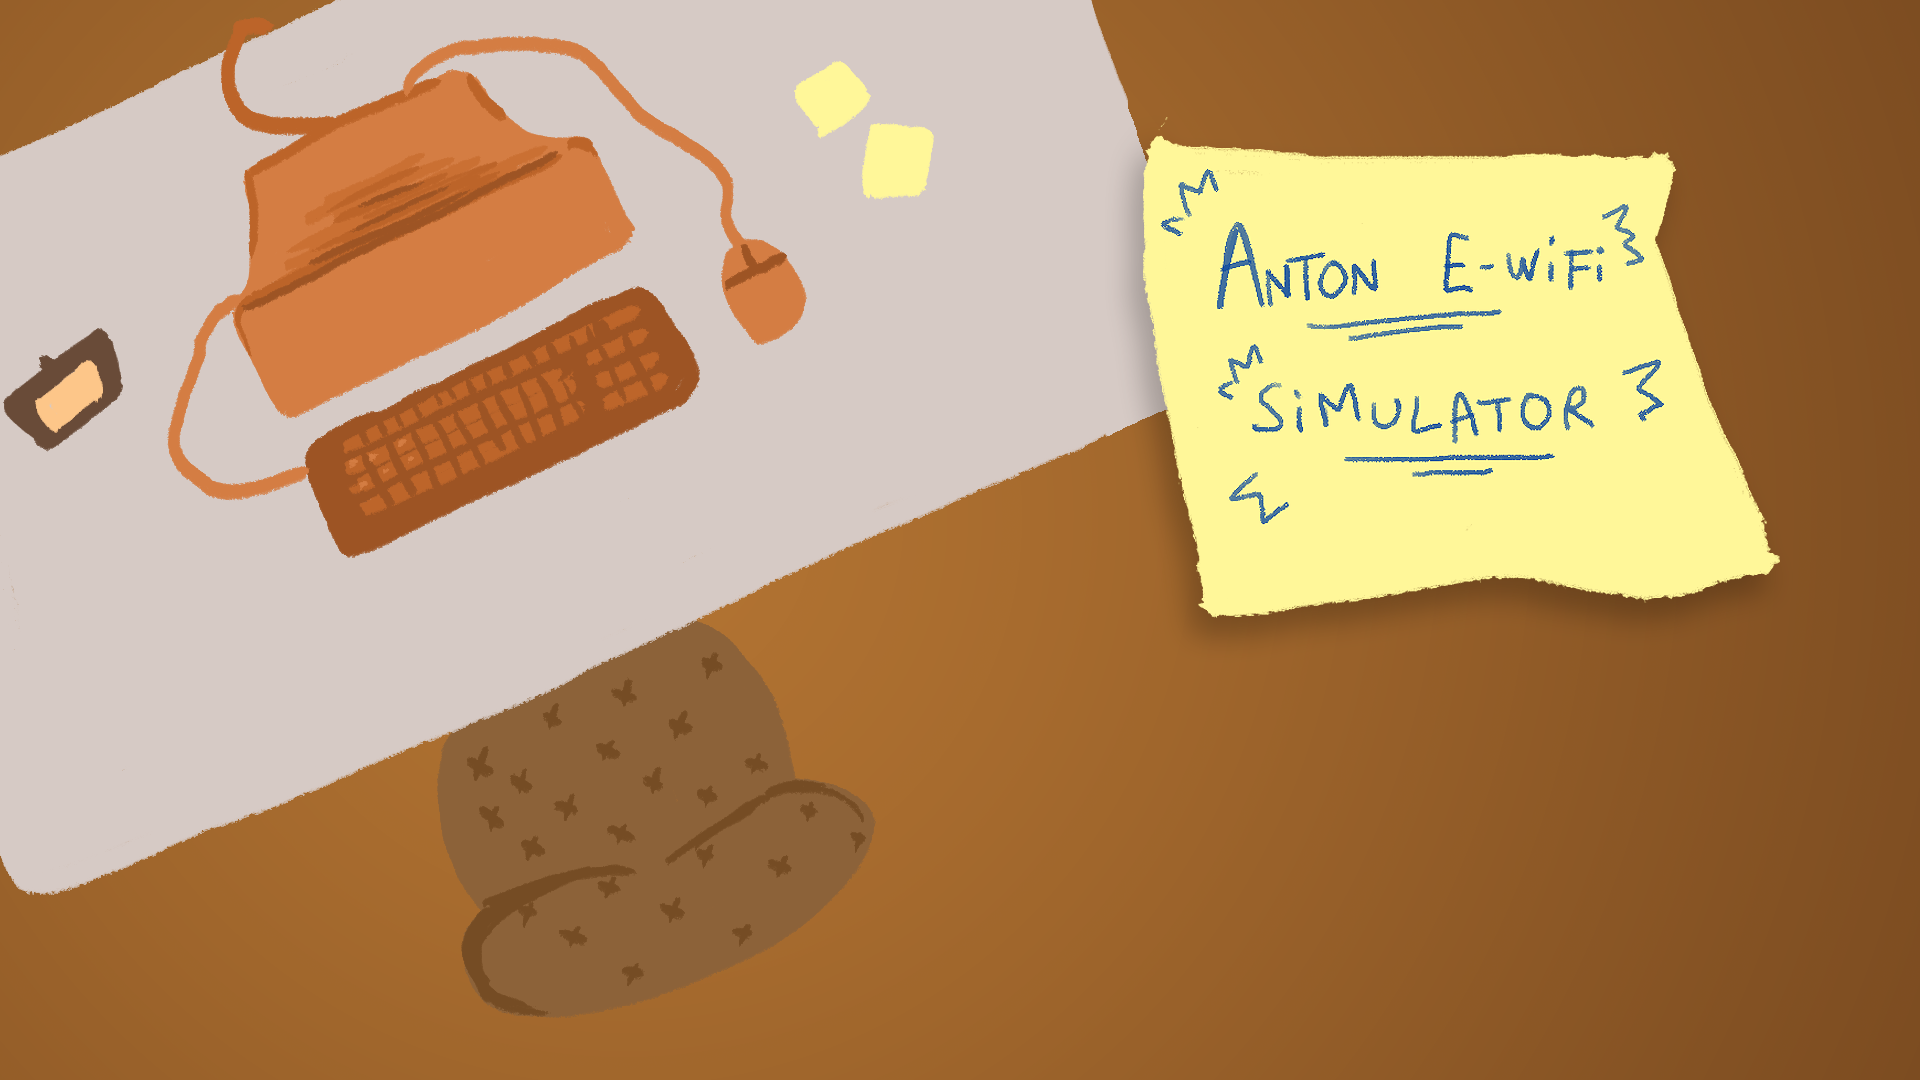 ANTON E-WiFi
SiMULATOR